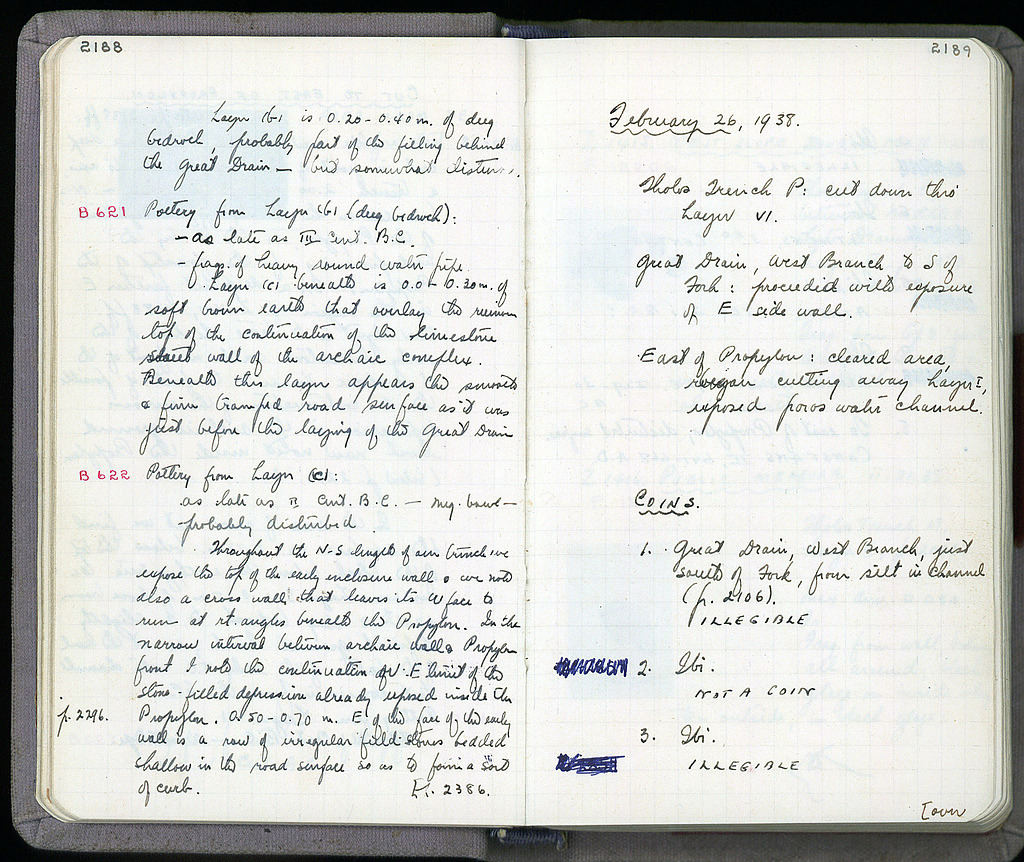 2188
Layer (b) is 0.20-0.40 m. of dug
bedrock, probably part of the filling behind
the Great Drain — but somewhat disturb.
B 621 Pottery from Layer (b) (dug bedrock):
- as late as III Cent. B.C.
- frag. of heavy round water pipe.
Layer (c) beneath is 0.0-0.20m. of
soft brown earth that overlay the
top of the continuation of the limestone
wall of the archaic complex.
Beneath this layer appears the smooth
& firm tramped road surface as it was
just before the laying of the Great Drain
B 622 Pottery from Layer (c)
as late as II Cent. B.C. — Meg. bowl —
probably disturbed.
Throughout the N-S length of our trench we
expose the top of the early enclosure wall & we note
also a cross wall that leaves its W face to
run at rt. angles beneath the Propylon. In the
narrow interval between archaic wall & Propylon
front I note the continuation of E limit of the
stone-filled depression already exposed inside the
p. 2296. Propylon. 0.50-0.70 m. E of the face of the early
wall is a row of irregular field stones bedded
shallow in the road surface so as to form a sort
of curb. 2386.
2189
February 26, 1938.
Tholos Trench P: cut down thro'
Layer VI.
Great Drain, West Branch to S of
Fork: proceeded with exposure
of E side wall.
East of Propylon: cleared area,
began cutting away Layer I,
exposed poros water channel.
COINS.
1. Great Drain, West Branch, just
South of Fork, from silt in channel
(p. 2106).
ILLEGIBLE
2. Ibi.
NOT A COIN
3. Ibi.
ILLEGIBLE
[over